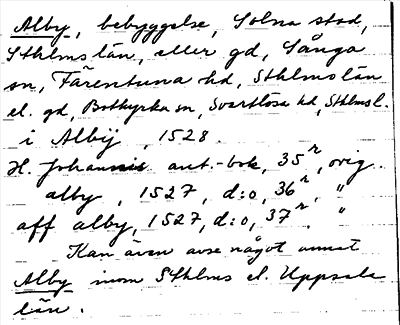 Alby, bebyggelse, Solna stad,
Sthlms län, eller gd, Sånga
sn, Färentuna hd, Sthlms län
el. gd, Botkyrka sn, Svartlösa hd, Sthlms l.
i Albij, 1528.
H. Johannis ant.-bok, 35r, orig.
alby, 1527, d:o, 36r, "
aff alby, 1527, d:o, 37r, "
Kan även avse något annat
Alby inom Sthlms el. Uppsala
län.